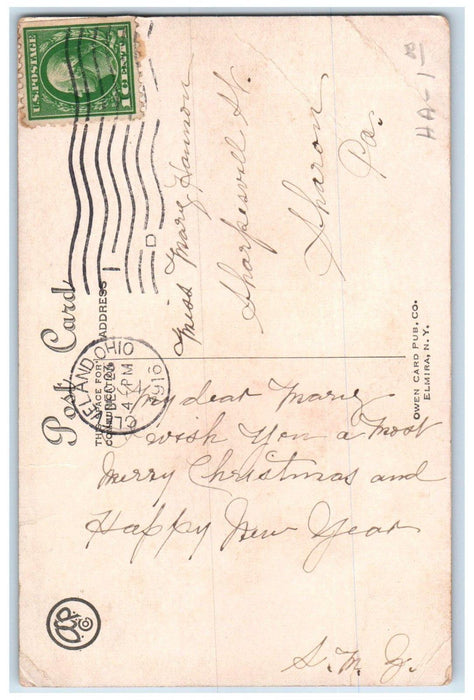 U.S. POSTAGE
1 CENT 1
HA-1
Post Card
THE SPACE FOR
COMMUNICATION
ADDRESS
CLEVELAND, OHIO
DEC 26
4 PM
1916
D
Miss Mary Hannon
Sharpsville St.
Sharon
Pa.
OWEN CARD PUB. CO.
ELMIRA, N.Y.
My dear Marie
wish You a Most
Merry Christmas and
Happy New Year